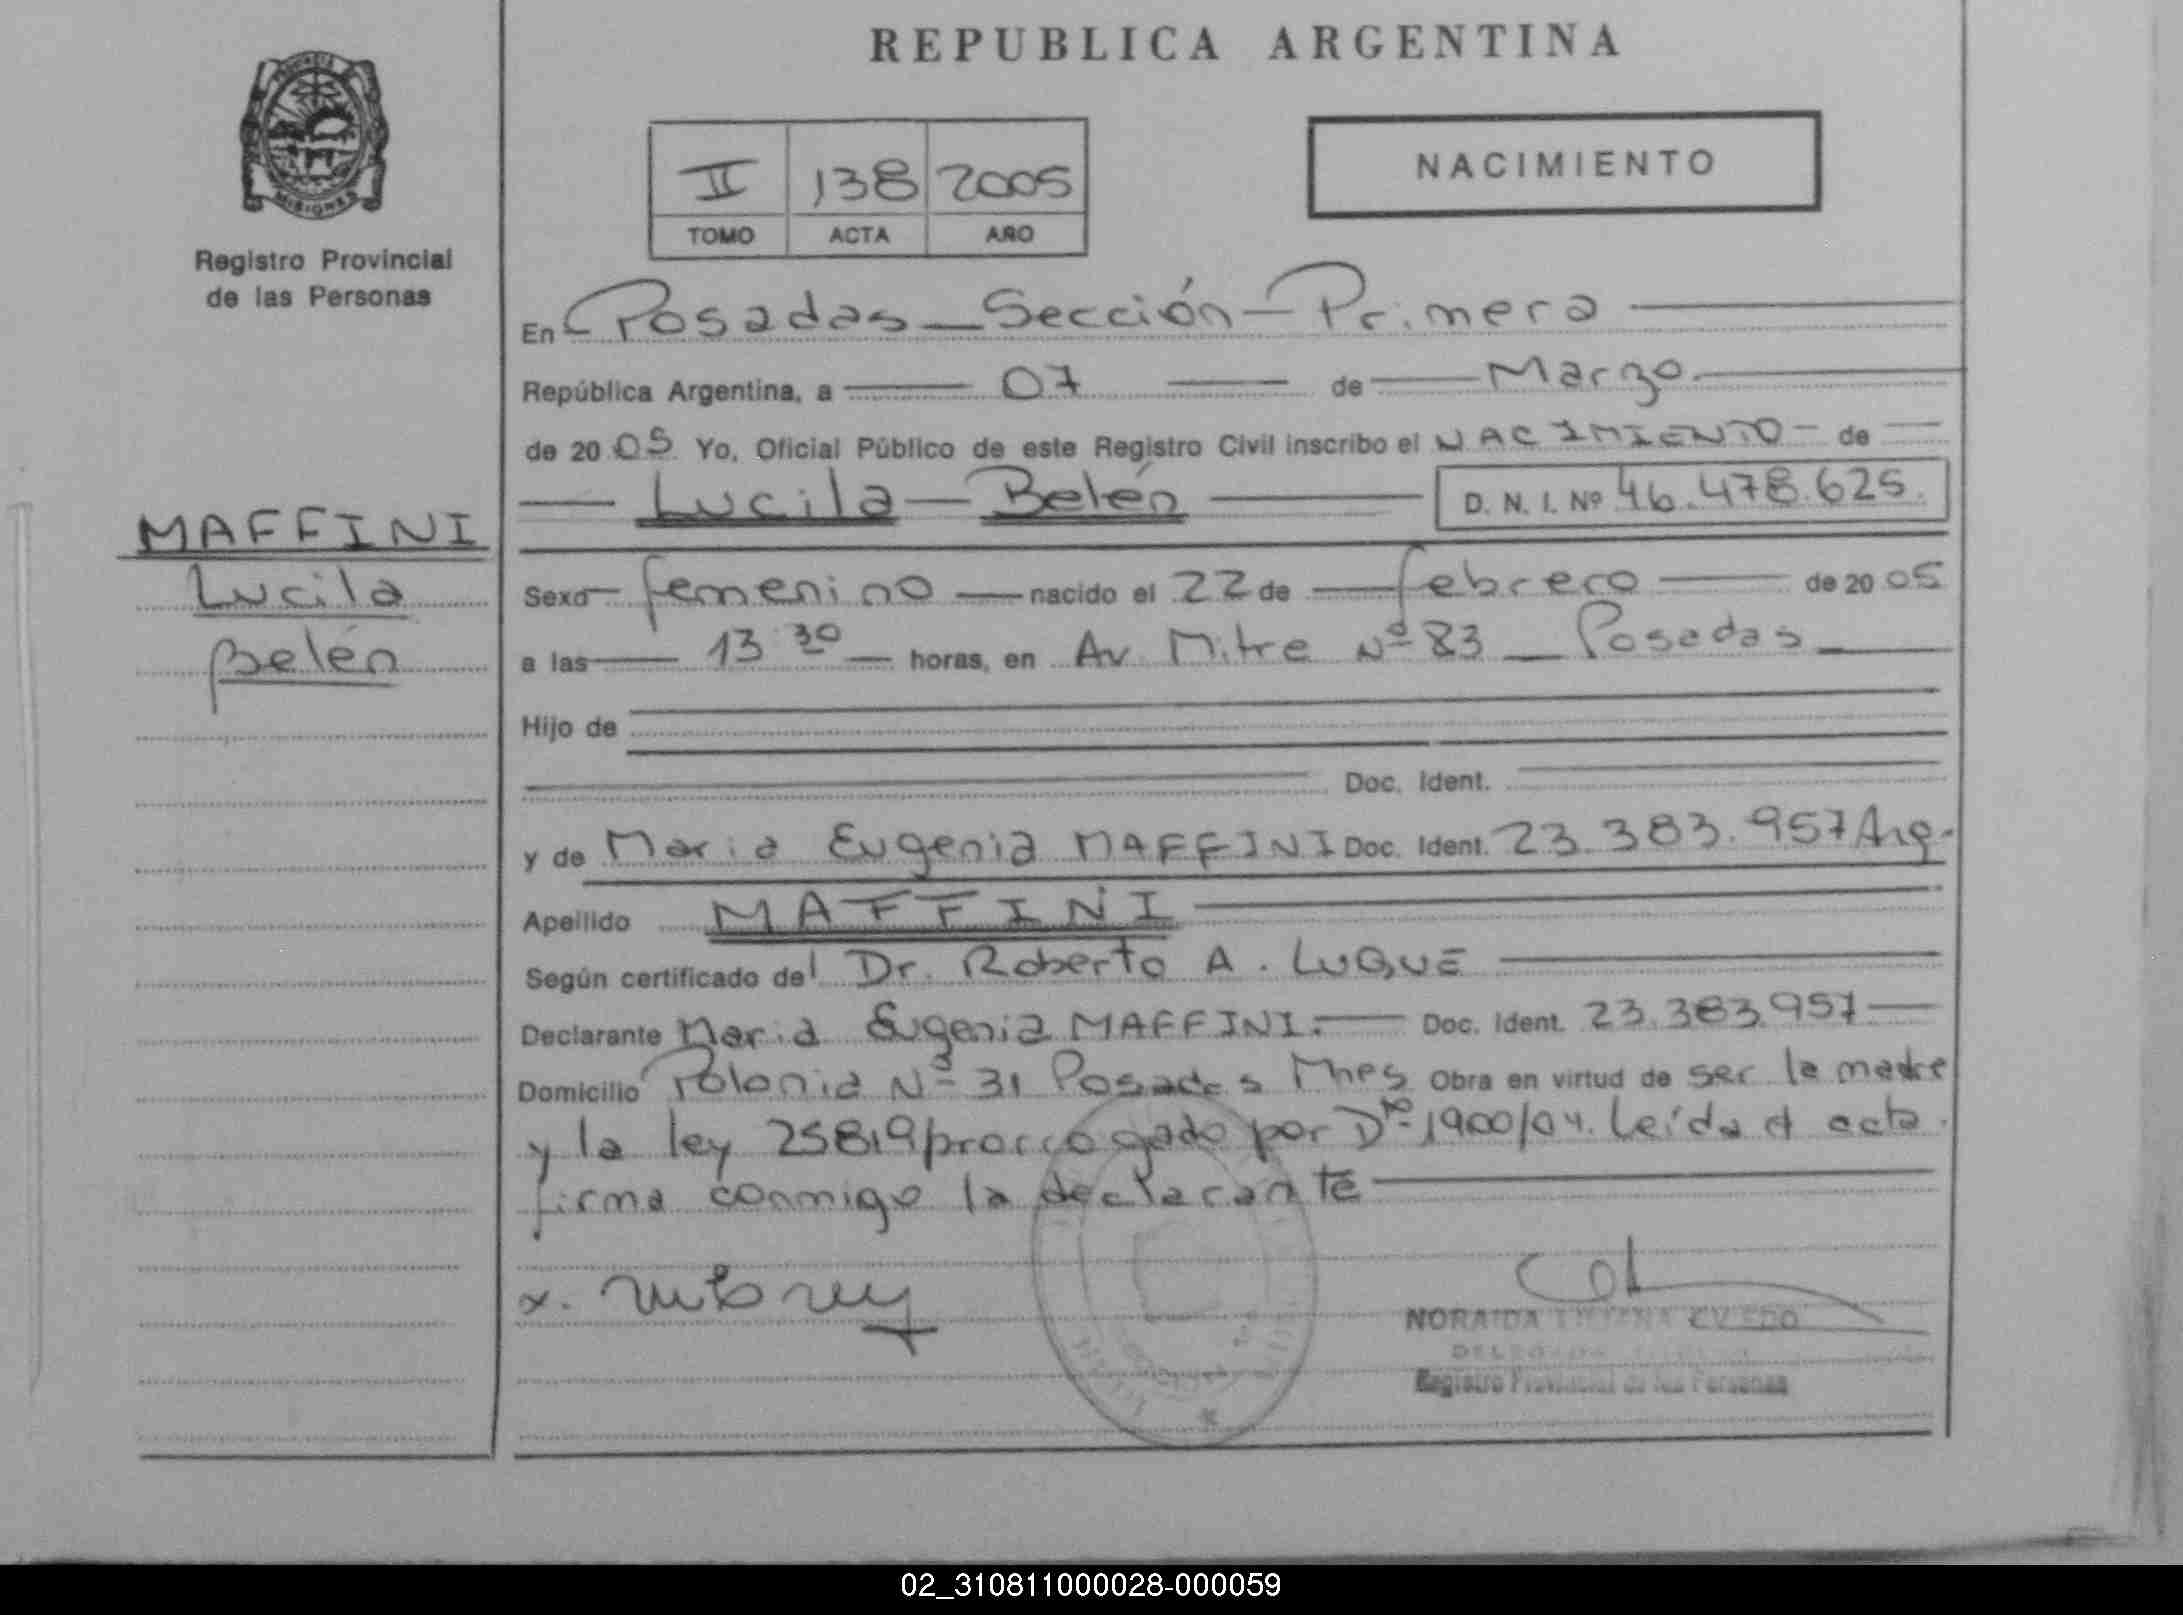 REPUBLICA ARGENTINA
PROVINCIA
MISIONES
Registro Provincial
de las Personas
II 138 2005
TOMO ACTA AÑO
NACIMIENTO
En Posadas Sección Primera
República Argentina, a 07 de Marzo
de 2005 Yo, Oficial Público de este Registro Civil inscribo el NACIMIENTO de
Lucila Belén D. N. I. Nº 46.478.625.
MAFFINI
Lucila
Belén
Sexo femenino nacido el 22 de febrero de 2005
a las 13 30 horas, en Av. Mitre Nº 83 Posadas
Hijo de
Doc. Ident.
y de Maria Eugenia MAFFINI Doc. Ident. 23.383.957 Arg.
Apellido MAFFINI
Según certificado del Dr. Roberto A. LUQUE
Declarante Maria Eugenia MAFFINI. Doc. Ident. 23.383.957
Domicilio Polonia Nº 31 Posadas Mnes Obra en virtud de ser la madre
y la ley 25819 prorrogado por Dto 1900/04. Leída el acta
firma conmigo la declarante
x.
NORAIDA
Registro Provincial de las Personas
02_310811000028-000059